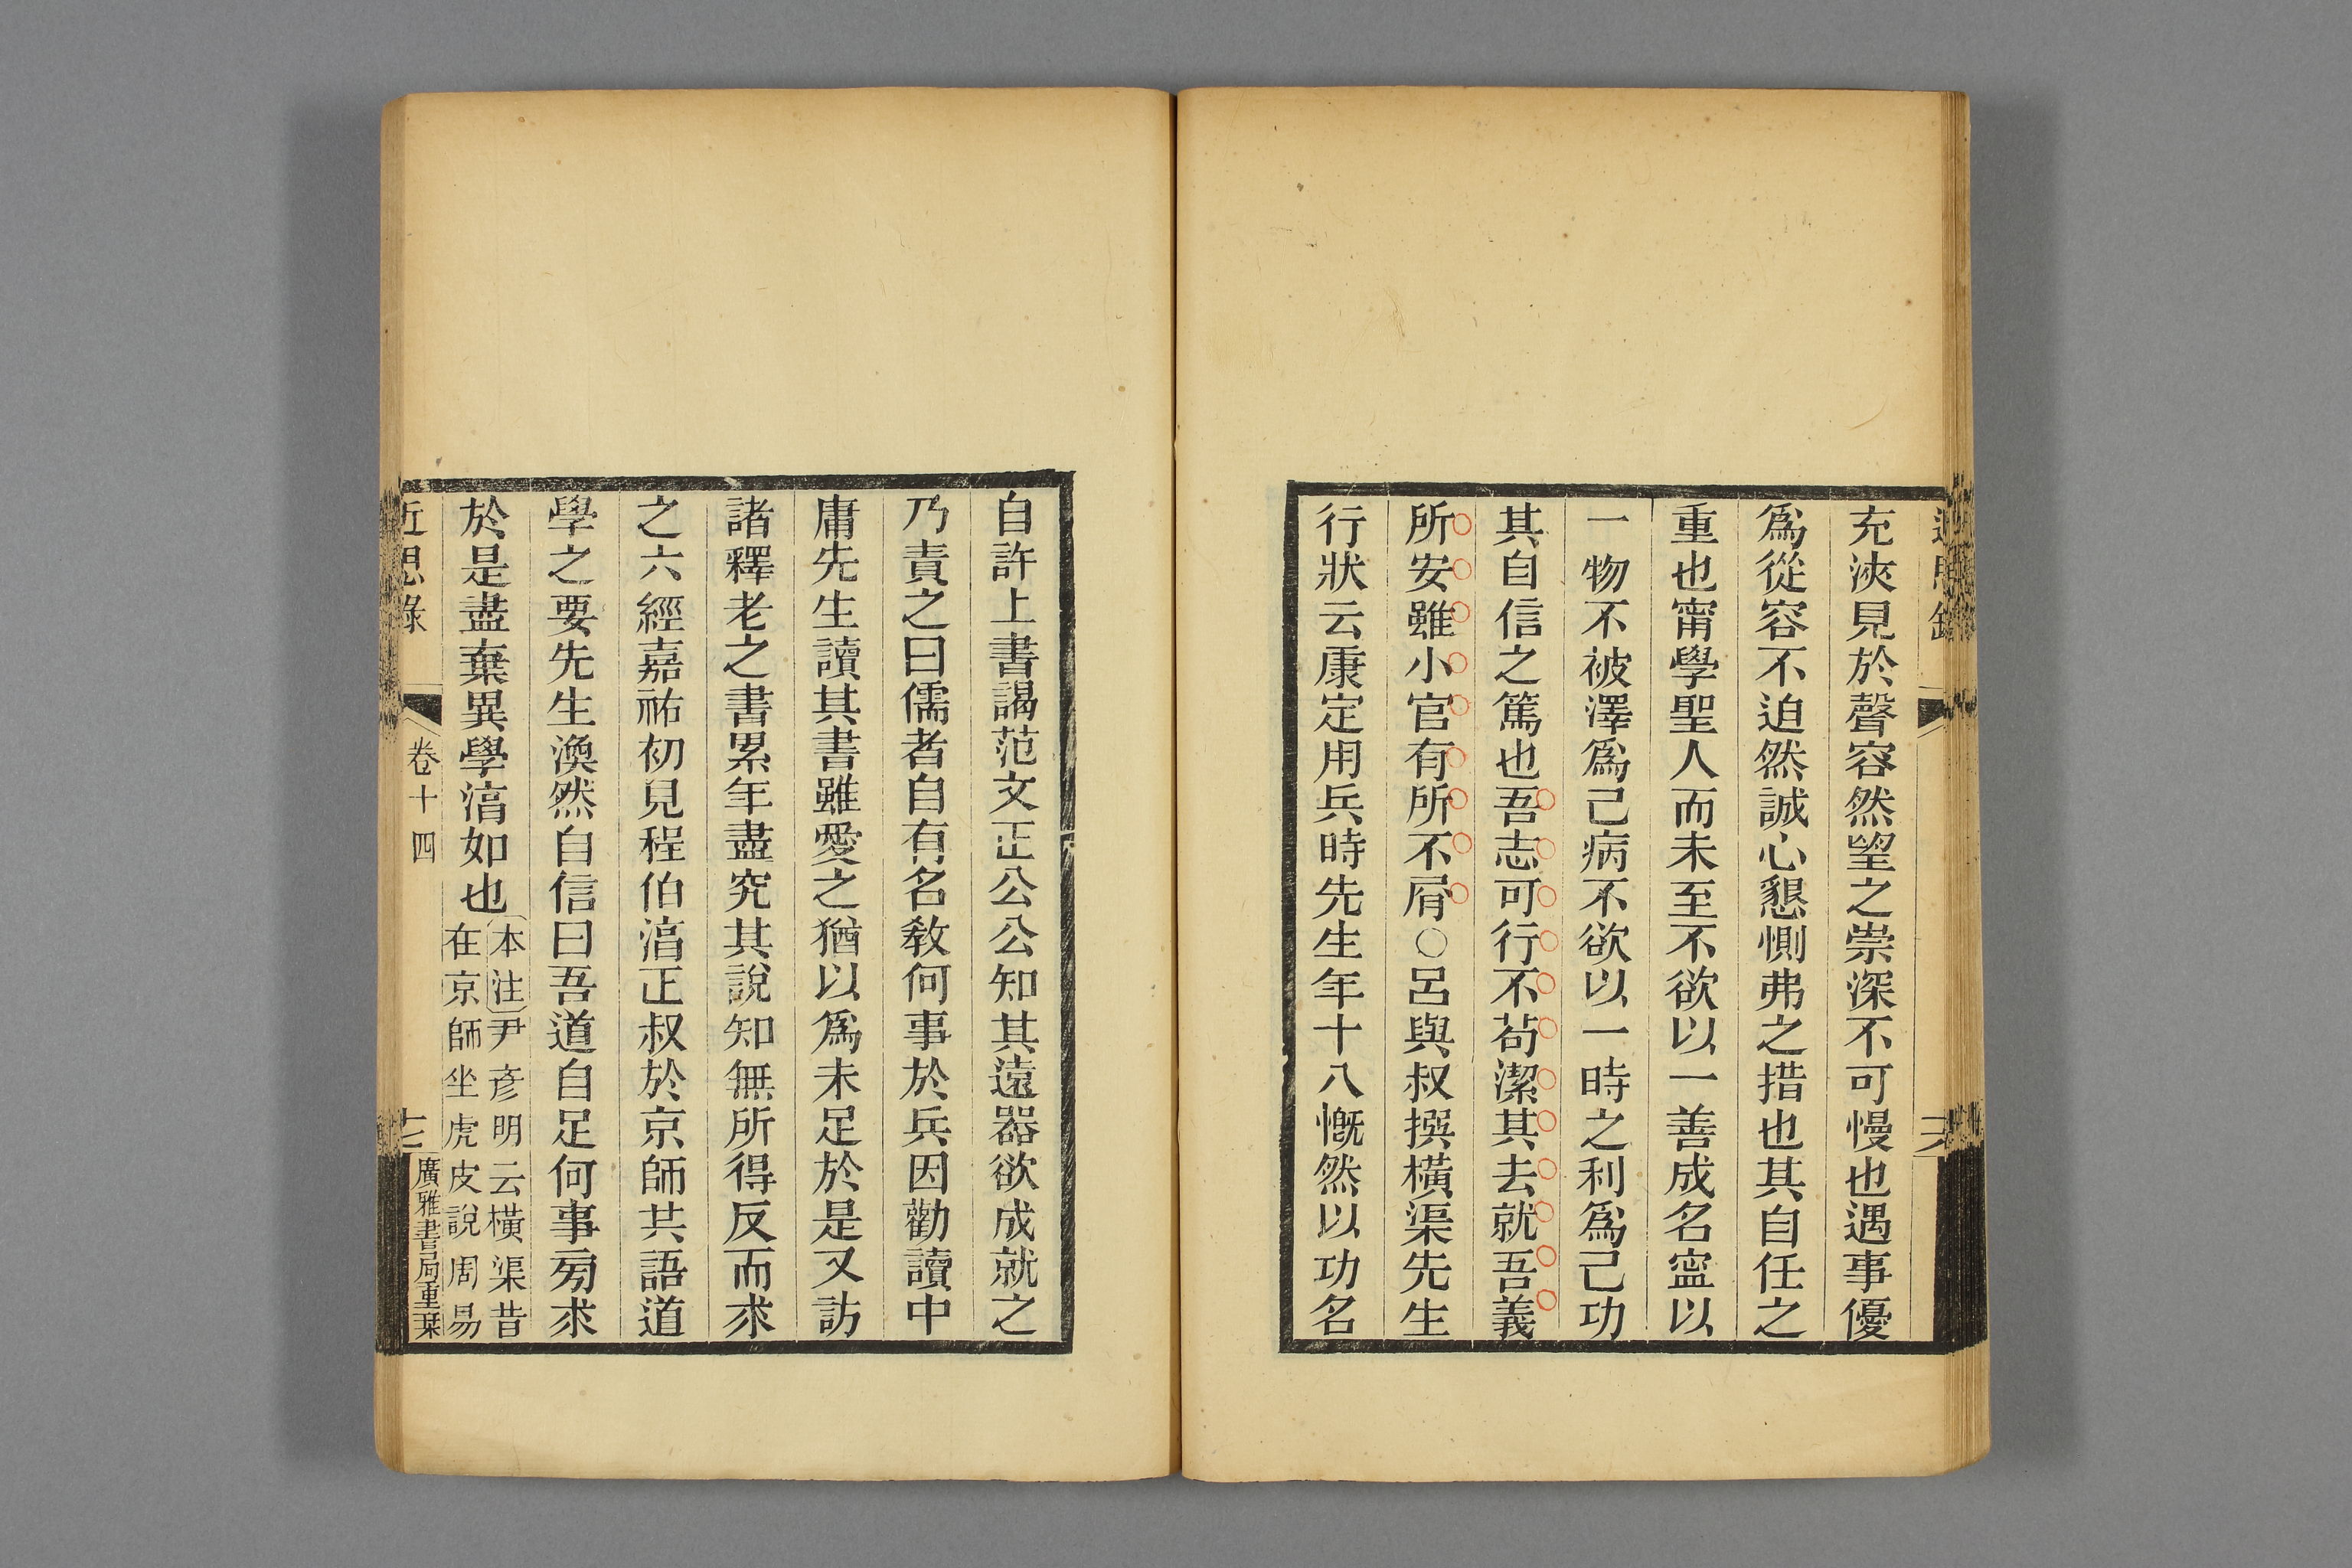 充浹見於聲容然望之崇深不可慢也遇事優
爲從容不迫然誠心懇惻弗之措也其自任之
重也甯學聖人而未至不欲以一善成名寍以
一物不被澤爲己病不欲以一時之利爲己功
其自信之篤也吾志可行不茍潔其去就吾義
所安雖小官有所不屑○呂與叔撰橫渠先生
行狀云康定用兵時先生年十八慨然以功名
自許上書謁范文正公公知其遠器欲成就之
乃責之曰儒者自有名敎何事於兵因勸讀中
庸先生讀其書雖愛之猶以爲未足於是又訪
諸釋老之書累年盡究其說知無所得反而求
之六經嘉祐初見程伯淯正叔於京師共語道
學之要先生渙然自信曰吾道自足何事匄求
於是盡棄異學淯如也
〔本注〕尹彥明云橫渠昔
在京師坐虎皮說周易
近思錄
卷十四
廣雅書局重栞